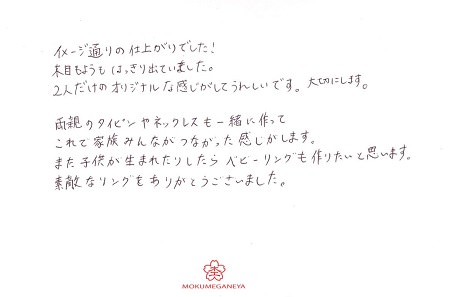 イメージ通りの仕上がりでした!
木目もようもはっきり出ていました。
2人だけのオリジナルな感じがしてうれしいです。大切にします。
両親のタイピンやネックレスも一緒に作って
これで家族みんながつながった感じがします。
また子供が生まれたりしたらベビーリングも作りたいと思います。
素敵なリングをありがとうございました。
MOKUMEGANEYA